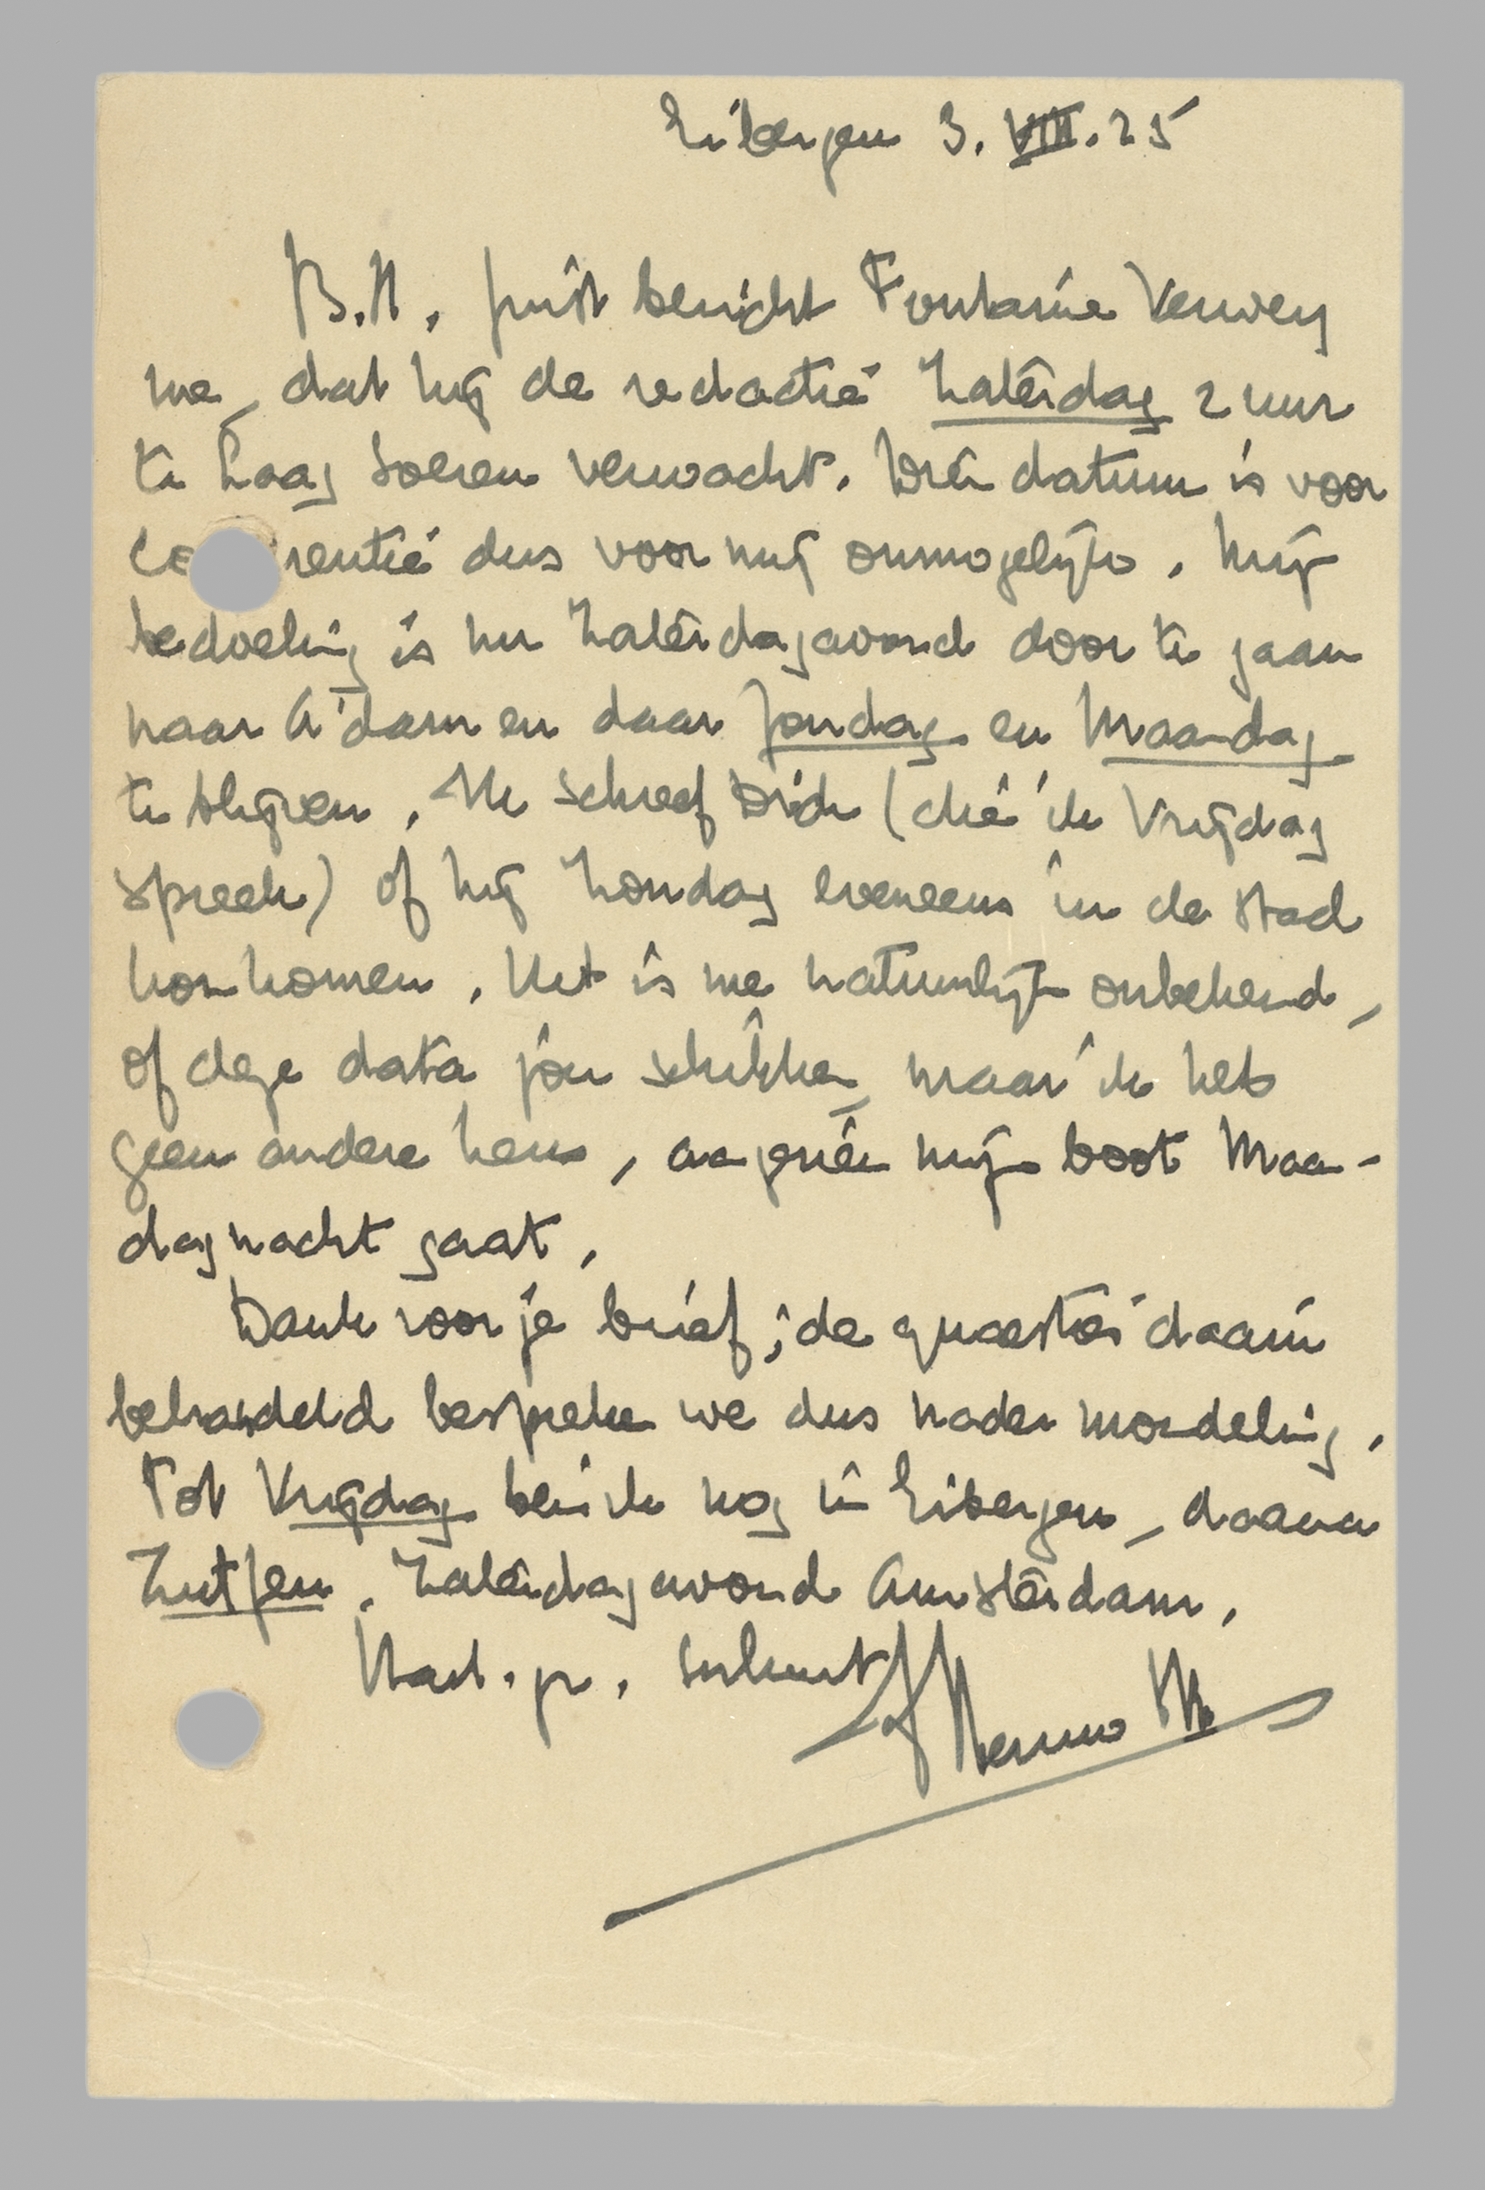 Eibergen 3.VIII.25
B.H., juist bericht Fontaine Verwey
me, dat hij de redactie Zaterdag 2 uur
te Laag Soeren verwacht. Dien datum is voor
co rentie dus voor mij onmogelijk. Mijn
bedoeling is nu Zaterdagavond door te gaan
naar A'dam en daar Zondag en Maandag
te blijven. Ik schreef Dick (die ik Vrijdag
spreek) of hij Zondag eveneens in de stad
kon komen. Het is me natuurlijk onbekend,
of deze data jou schikken, maar ik heb
geen andere keus, aangezien mijn boot Maan-
dagnacht gaat.
Dank voor je brief; de quaesties daarin
behandeld bespreken we dus nader mondeling.
Tot Vrijdag ben ik nog in Eibergen, daarna
Zutfen, Zaterdagavond Amsterdam.
Hart. gr.
Menno